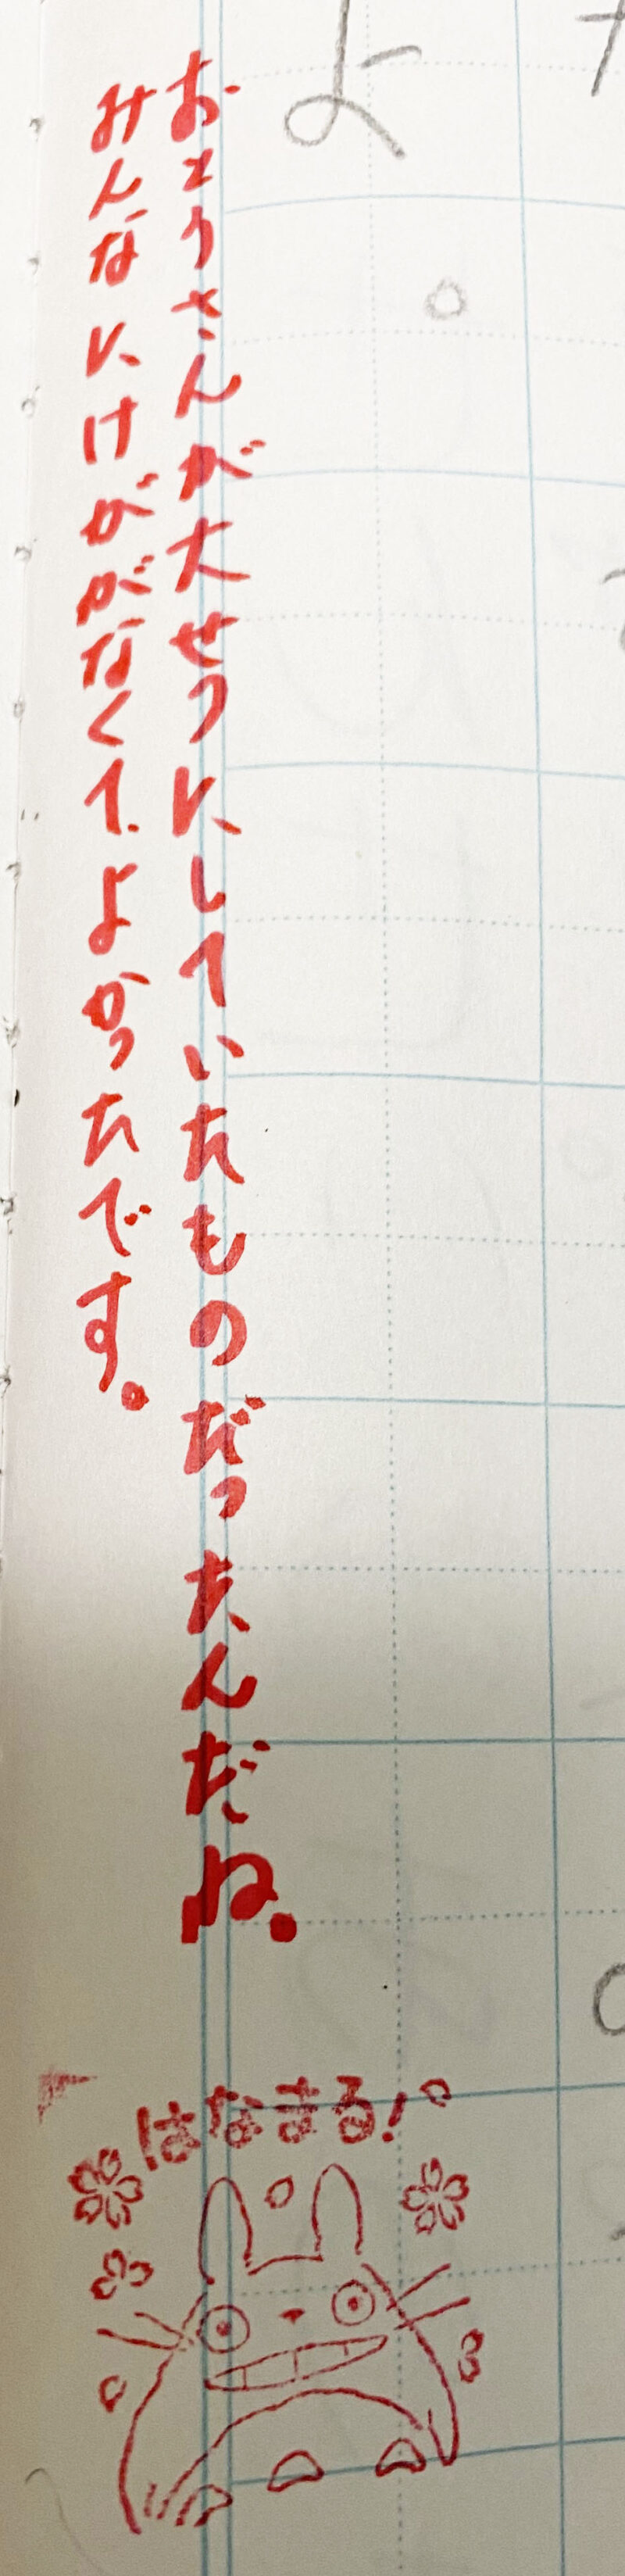 よ。
おとうさんが大せつにしていたものだったんだね。
みんなにけががなくてよかったです。
はなまる!